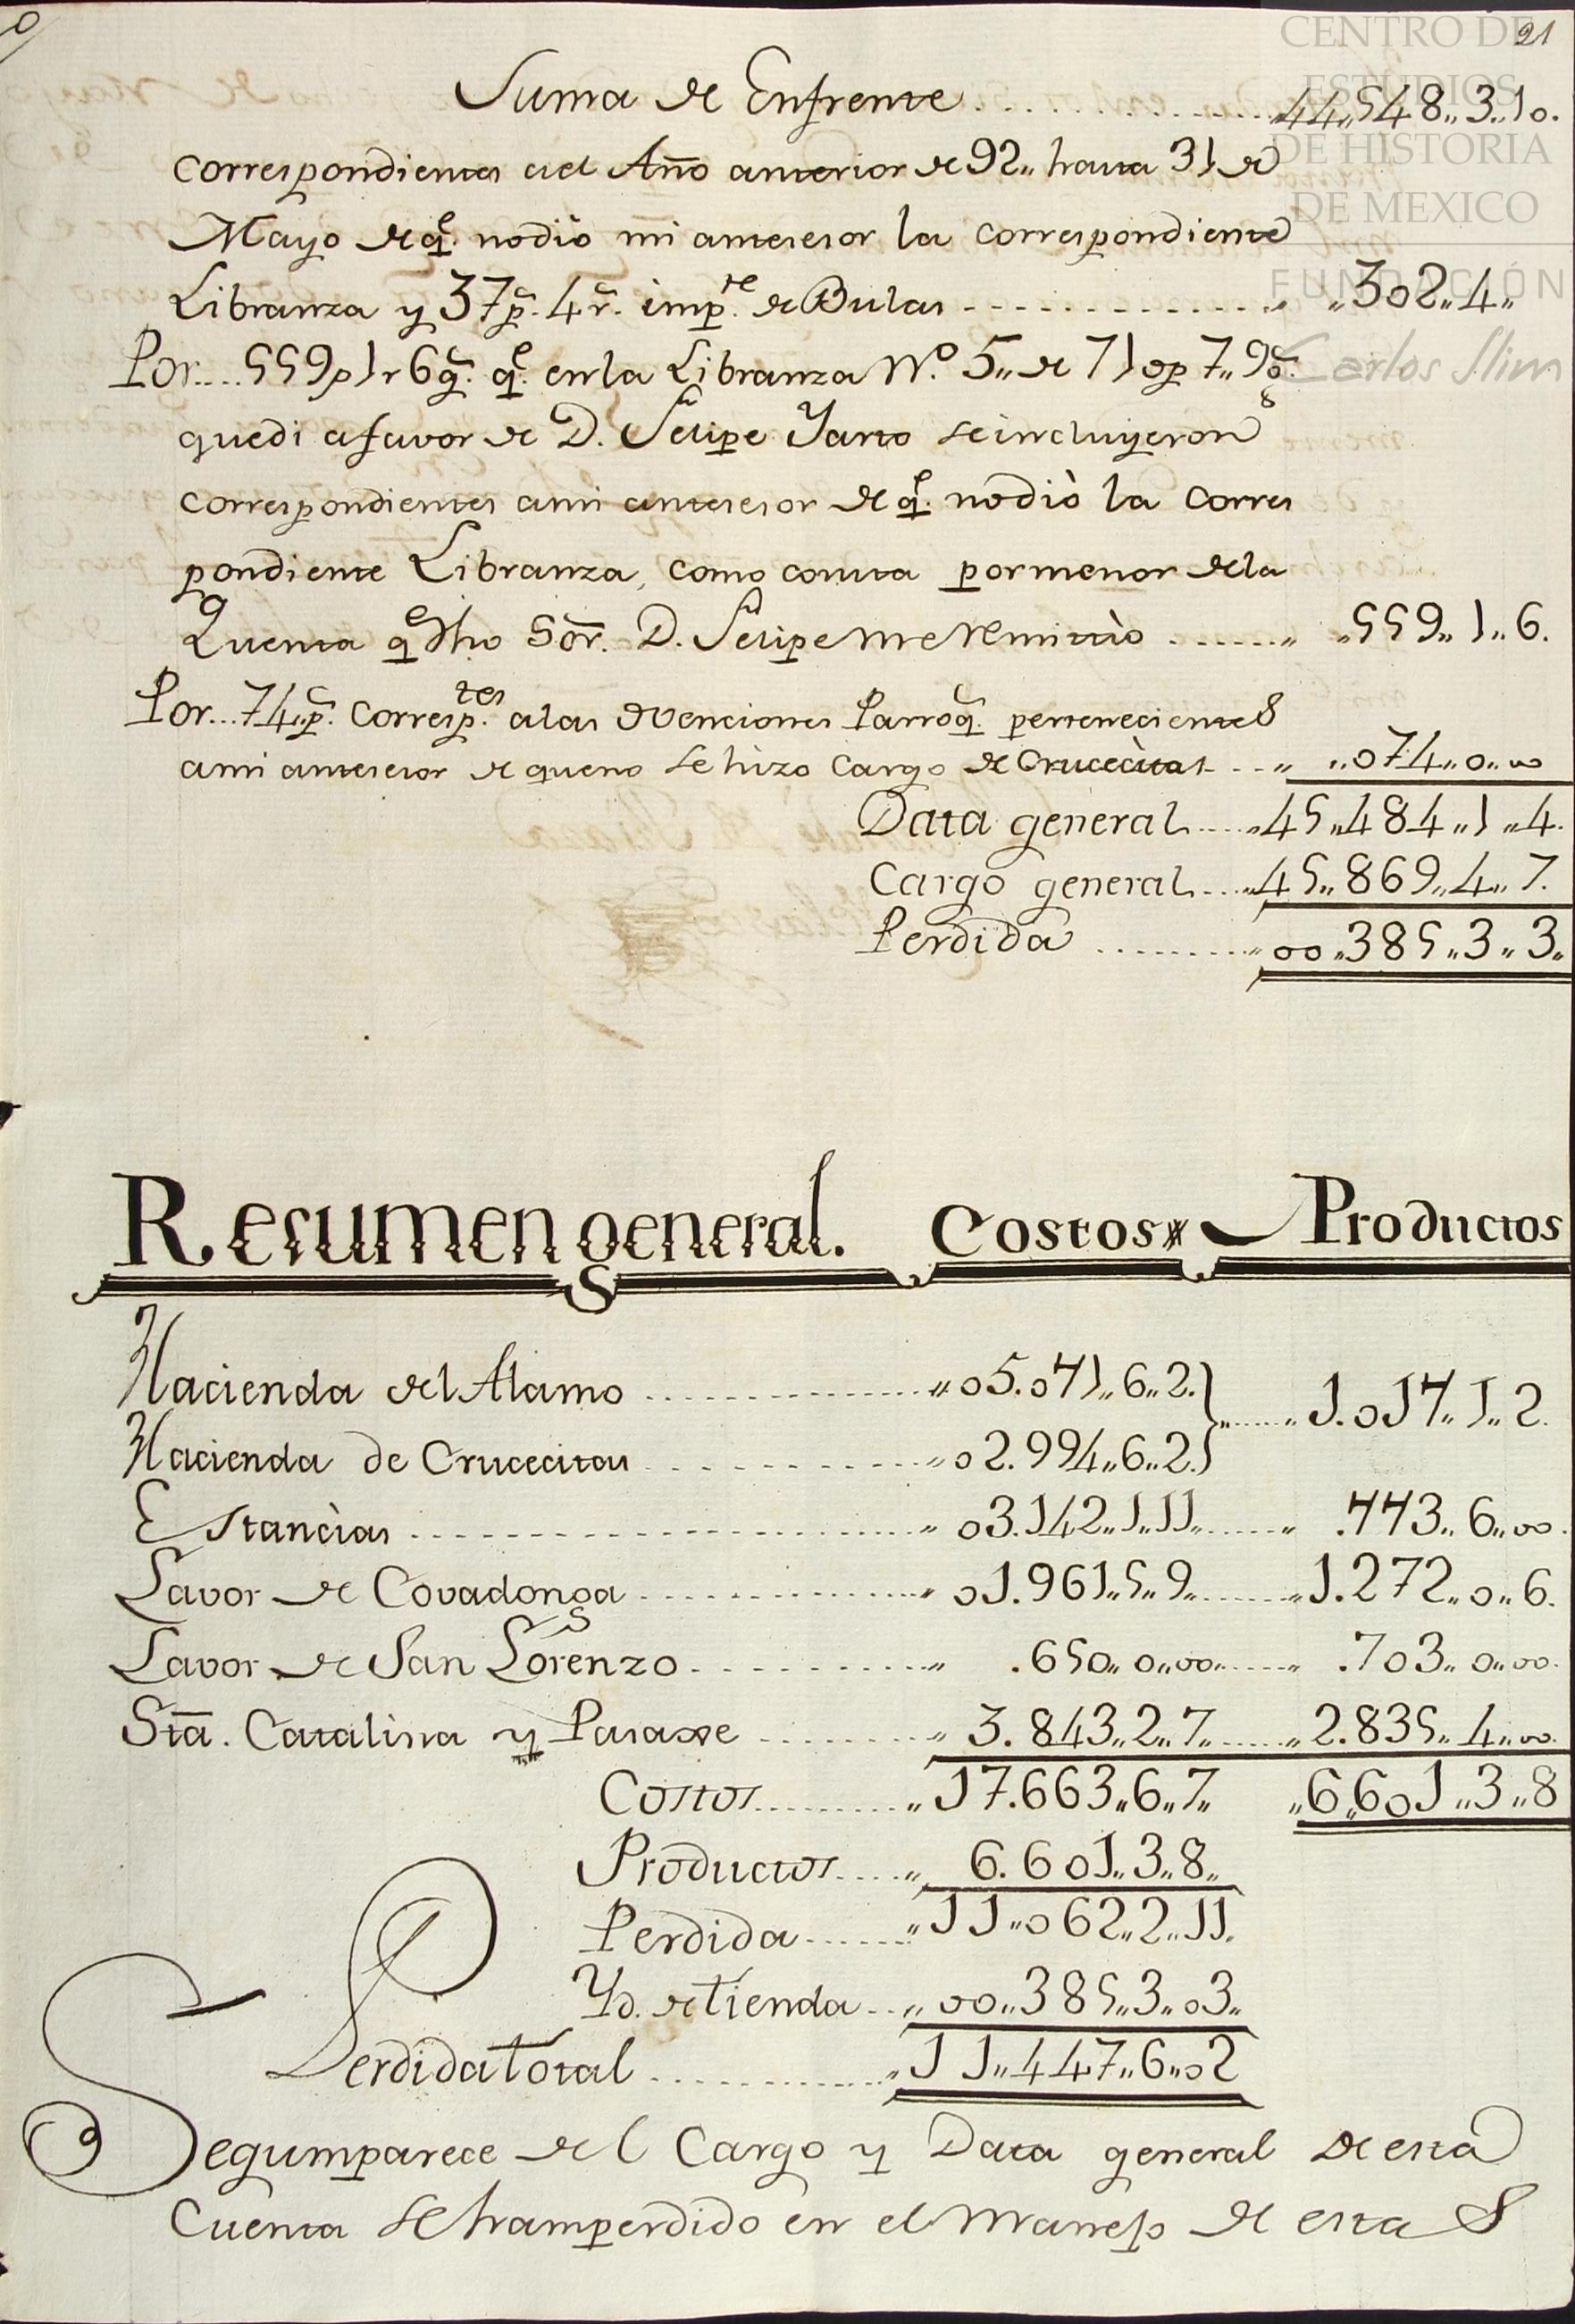 21
CENTRO DE
ESTUDIOS
DE HISTORIA
DE MEXICO
FUNDACIÓN
Carlos Slim
Suma de Enfrente ............ 44,,548,,3,,10.
correspondientes al Año anterior de 92,, hasta 31 de
Mayo de q.e no diò mi antesesor la correspondiente
Libranza y 37 p.s 4 r.s imp.te de Bulas ............ ,,302,,4,,
Por.... 559 p 1 r 6 g.s q.e en la Libranza N.o 5,, de 710 p 7,, 9 g.s
que di a favor de D. Felipe Yarto se incluyeron
correspondientes a mi antesesor de q.e no diò la corres
pondiente Libranza, como consta por menor de la
Quenta q.e dho Sõr. D. Felipe me remittio ...... ,,559,,1,,6.
Por... 74 p.s corresp.tes a las Obenciones Parroq.s pertenecientes
a mi antesesor de que no se hizo Cargo de Crucècitas ... ,,074,,0,,00
Data general .... ,,45,,484,,1,,4.
Cargo general ... ,,45,,869,,4,,7.
Perdida ......... ,,00,,385,,3,,3,,
Resumen general. Costos Productos
Hacienda del Alamo ............ ,,05.071,,6,,2.} ...... ,,1.017,,1,,2.
Hacienda de Crucecitas ............ ,,02.994,,6,,2.}
Estancìas ............ ,,03.142,,1,,11,, ...... ,,.773,,6,,00.
Lavor de Covadonga ............ ,,01.961,,5,,9,, ...... ,,1.272,,0,,6.
Lavor de San Lorenzo ............ ,, .650,,0,,00,, ...... ,,.703,,0,,00.
Sta. Catalina y Paraxe ......... ,, 3.843,,2,,7,, ...... ,,2.835,,4,,00.
Costos .......... ,,17.663,,6,,7,, ,,6,,601,,3,,8
Productos .... ,, 6.601,,3,,8,,
Perdida ...... ,,11,,062,,2,,11.
Yd. de tienda ... ,,00,,385,,3,,03,,
Perdida total ............ ,,11,,447,,6,,02
Segumparece del Cargo y Data general de esta
Cuenta se hamperdido en el Manejo de esta